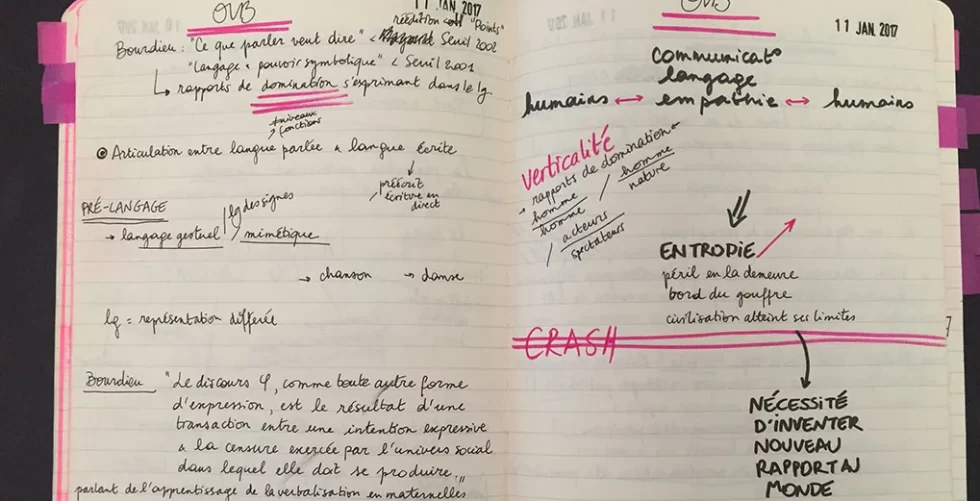 OVB
11 JAN. 2017
réédition coll "Points"
Bourdieu : "Ce que parler veut dire" < Seuil 2002
"Langage & pouvoir symbolique" < Seuil 2001
↳ rapports de domination s'exprimant dans le lg
+ niveaux
fonctions
Articulation entre langue parlée & langue écrite
PRÉ-LANGAGE
/ lg des signes
→ langage gestuel / mimétique
/ préécrit
écriture en
direct
→ chanson → danse
lg = représentation différée
Bourdieu "Le discours φ, comme toute autre forme
d'expression, est le résultat d'une
transaction entre une intention expressive
& la censure exercée par l'univers social
dans lequel elle doit se produire."
parlant de l'apprentissage de la verbalisation en maternelles
OVB
11 JAN. 2017
communicat°
langage
humains ↔ empathie ↔ humains
verticalité
→ rapports de domination
homme
homme
/ homme
nature
/ acteurs
spectateurs
ENTROPIE
péril en la demeure
bord du gouffre
civilisation atteint ses limites
CRASH
NÉCESSITÉ
D'INVENTER
NOUVEAU
RAPPORT AU
MONDE